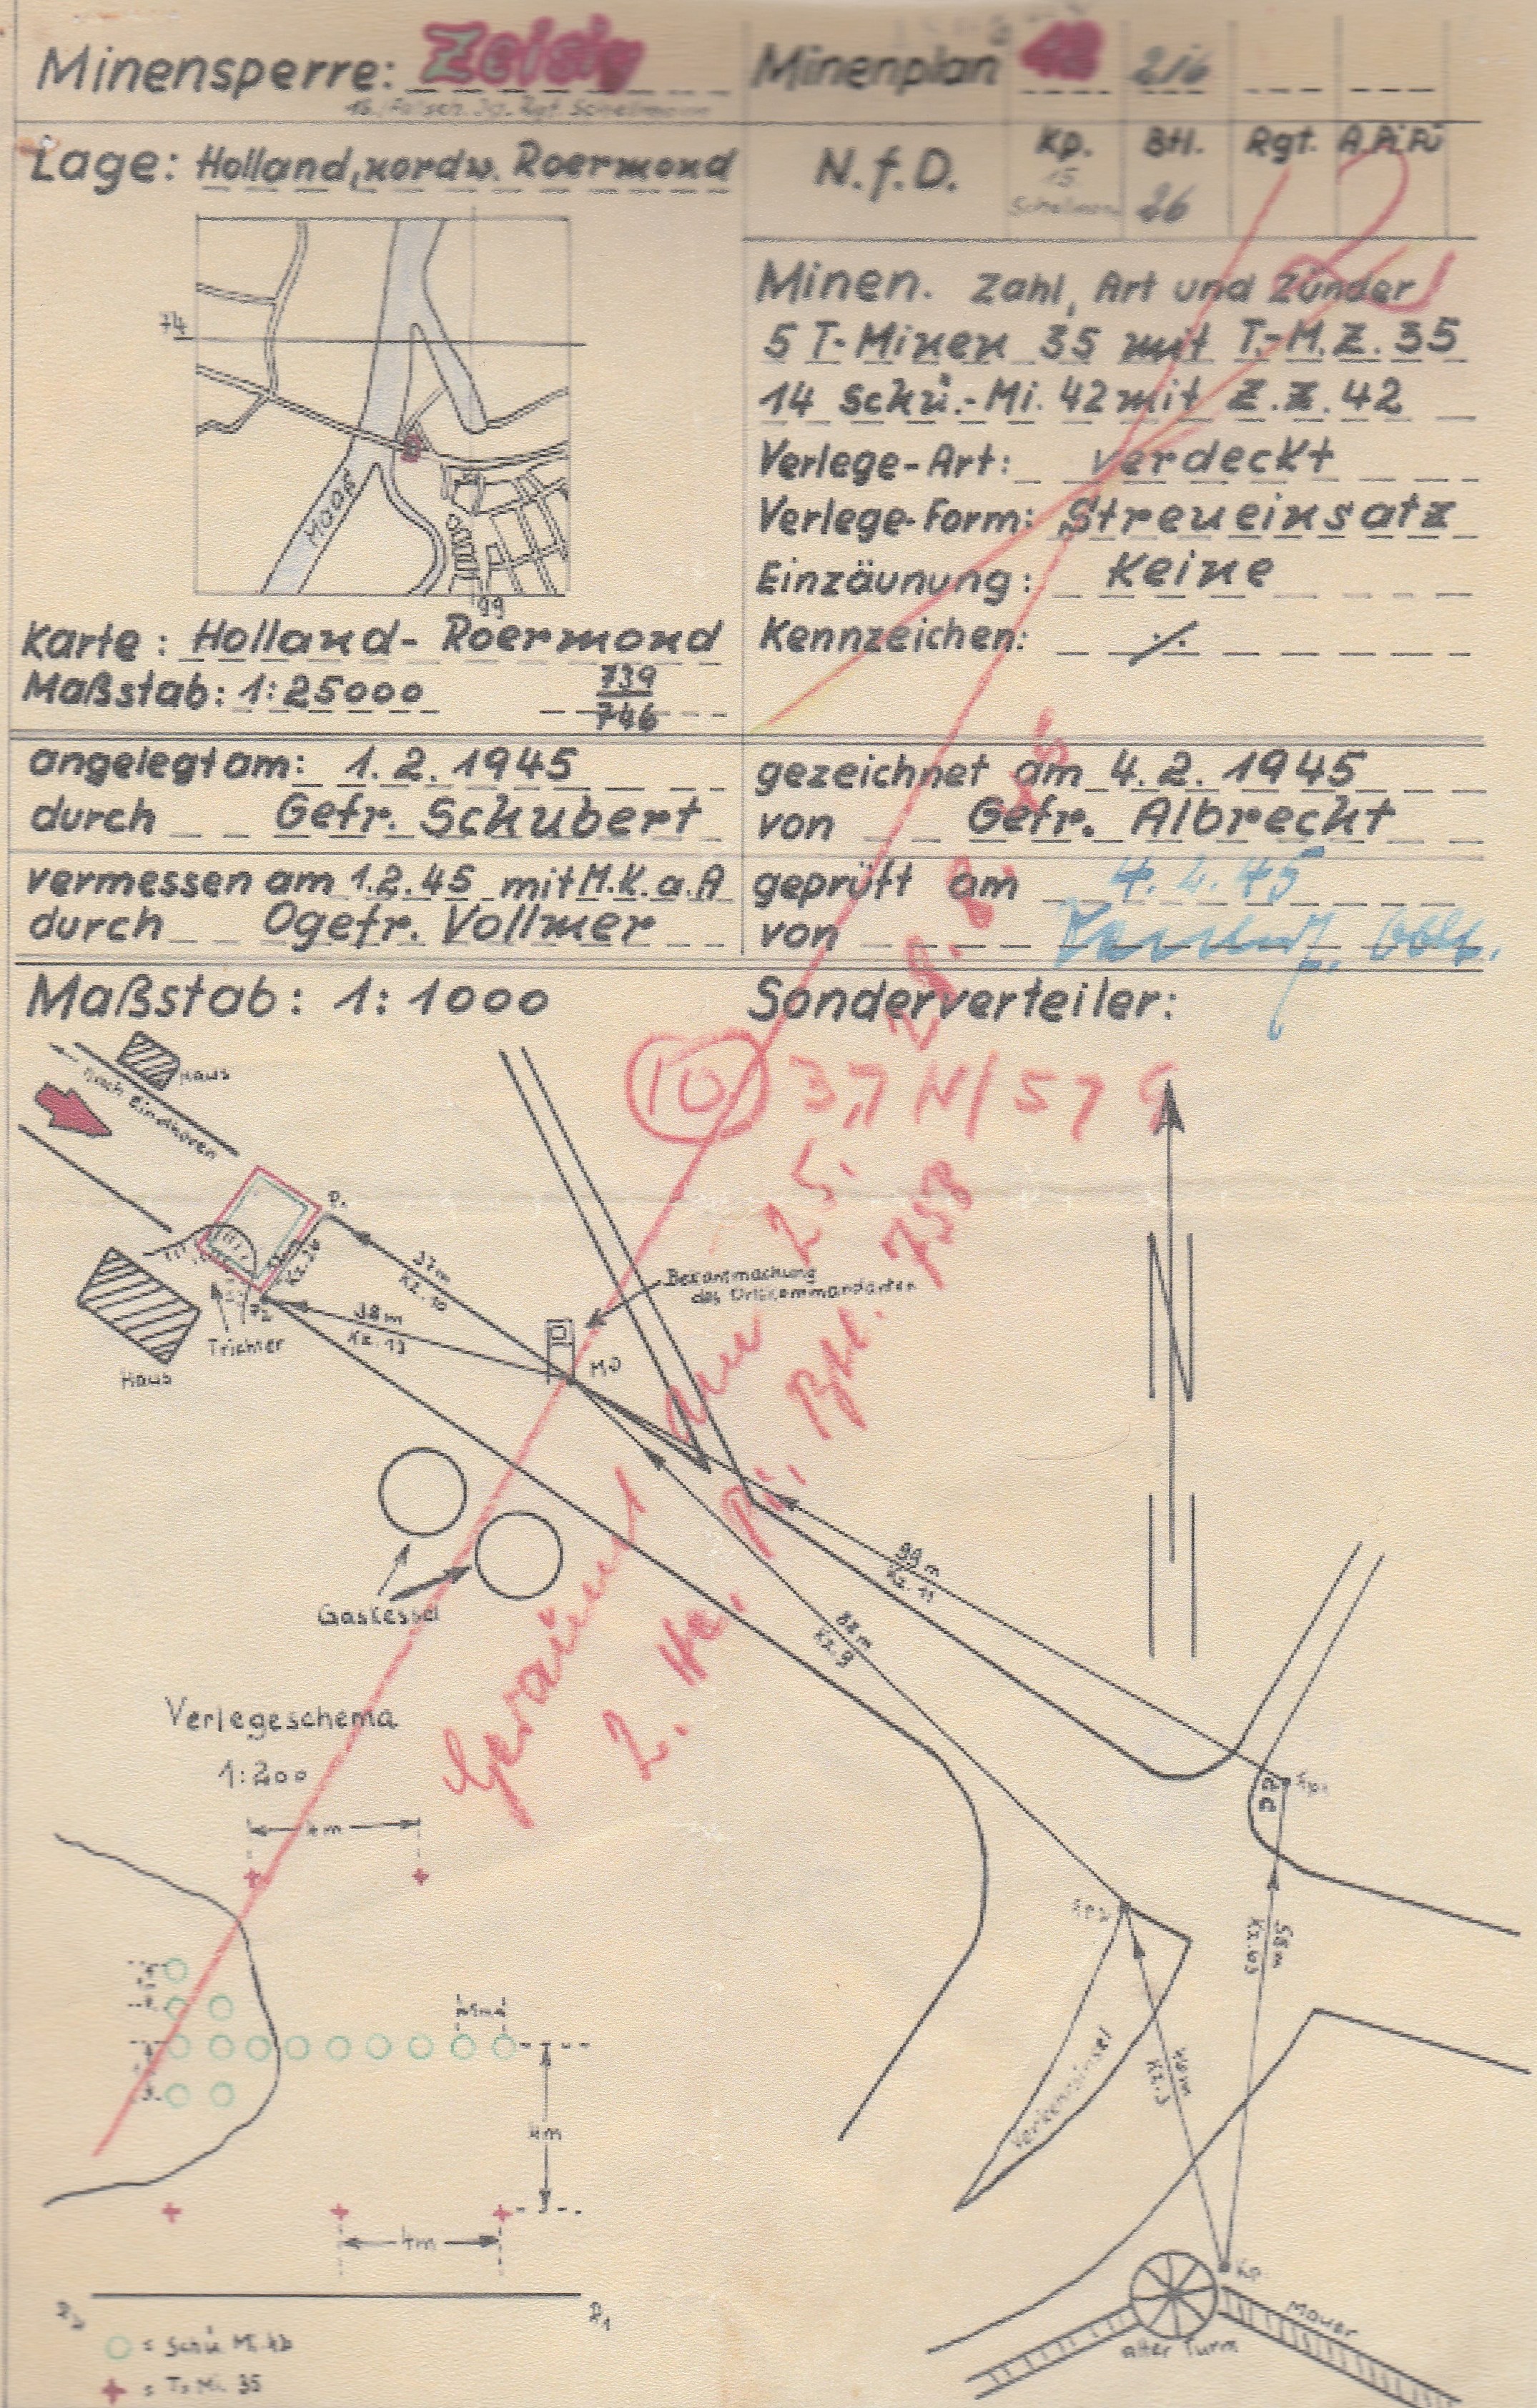 Minensperre: Zeisig
Minenplan 42 216
16./Fallsch. Jg. Rgt. Schellmann
Lage: Holland, nordw. Roermond
N.f.D.
Kp. Btl. Rgt. A.Pi.Fü
15. 26
74
Maas
99
Karte: Holland- Roermond
Maßstab: 1:25000 739
746
Minen. Zahl, Art und Zünder
5 T-Minen 35 mit T.-M.Z. 35
14 Schü.-Mi. 42 mit Z.Z. 42
Verlege-Art: verdeckt
Verlege-Form: Streueinsatz
Einzäunung: Keine
Kennzeichen: ./.
angelegt am: 1.2.1945
durch Gefr. Schubert
gezeichnet am 4.2.1945
von Gefr. Albrecht
vermessen am 1.2.45 mit M.K.a.A
durch Ogefr. Vollmer
geprüft am 4.2.45
von
Maßstab: 1:1000
Sonderverteiler:
Haus
nach Eindhoven
10 3,7 N/57 G
N
37m
Kz. 10
38m
Kz. 13
Bekantmachung
des Ortskommandanten
Trichter
Haus
MP
Gaskessel
98m
Kz. 11
88m
Kz. 9
Geräumt am 25. 28.8.45
2. Ko. Pi. Btl. 753
Verlegeschema
1:200
4m
4m
4m
58m
40m
Kz. 3
Verkehrsinsel
Mauer
alter Turm
= Schü Mi. 42
= T. Mi. 35